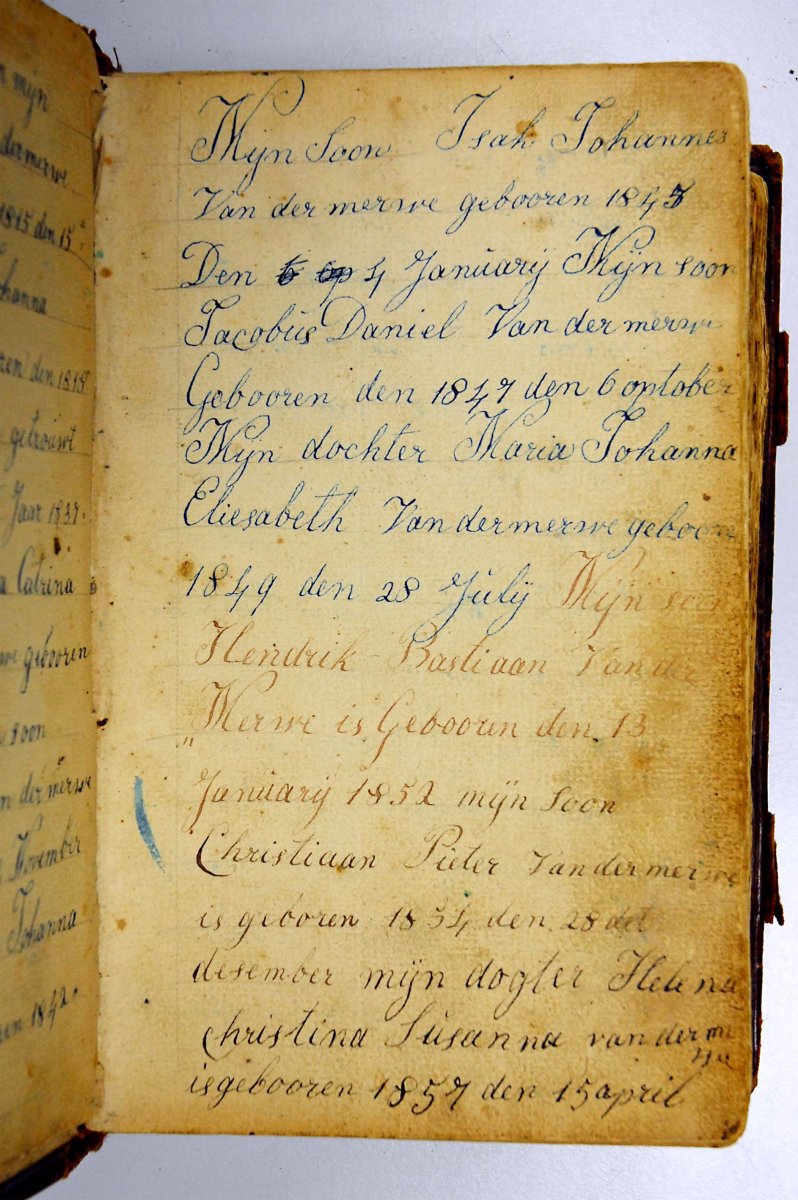 n mijn
der merwe
1815 den 15
hanna
ren den 1818
getrouwt
Jaar 1837.
a Catrina
we gebooren
soon
n der merwe
November
Johanna
en 1842.
Mijn Soon Isah Johannes
Van der merwe gebooren 1845
Den 4 Januarij Mijn soon
Jacobus Daniel Van der merwe
Gebooren den 1847 den 6 optober
Mijn dochter Maria Johanna
Eliesabeth Van der merwe geboore
1849 den 28 Julij Mijn soon
Hendrik Bastiaan Van der
Merwe is Gebooren den 13
Januarij 1852 mijn Soon
Christiaan Pieter Van der merwe
is geboren 1854 den 28 det
desember mijn dogter Helena
Christina Susanna van der me
rwe
is gebooren 1857 den 15 april